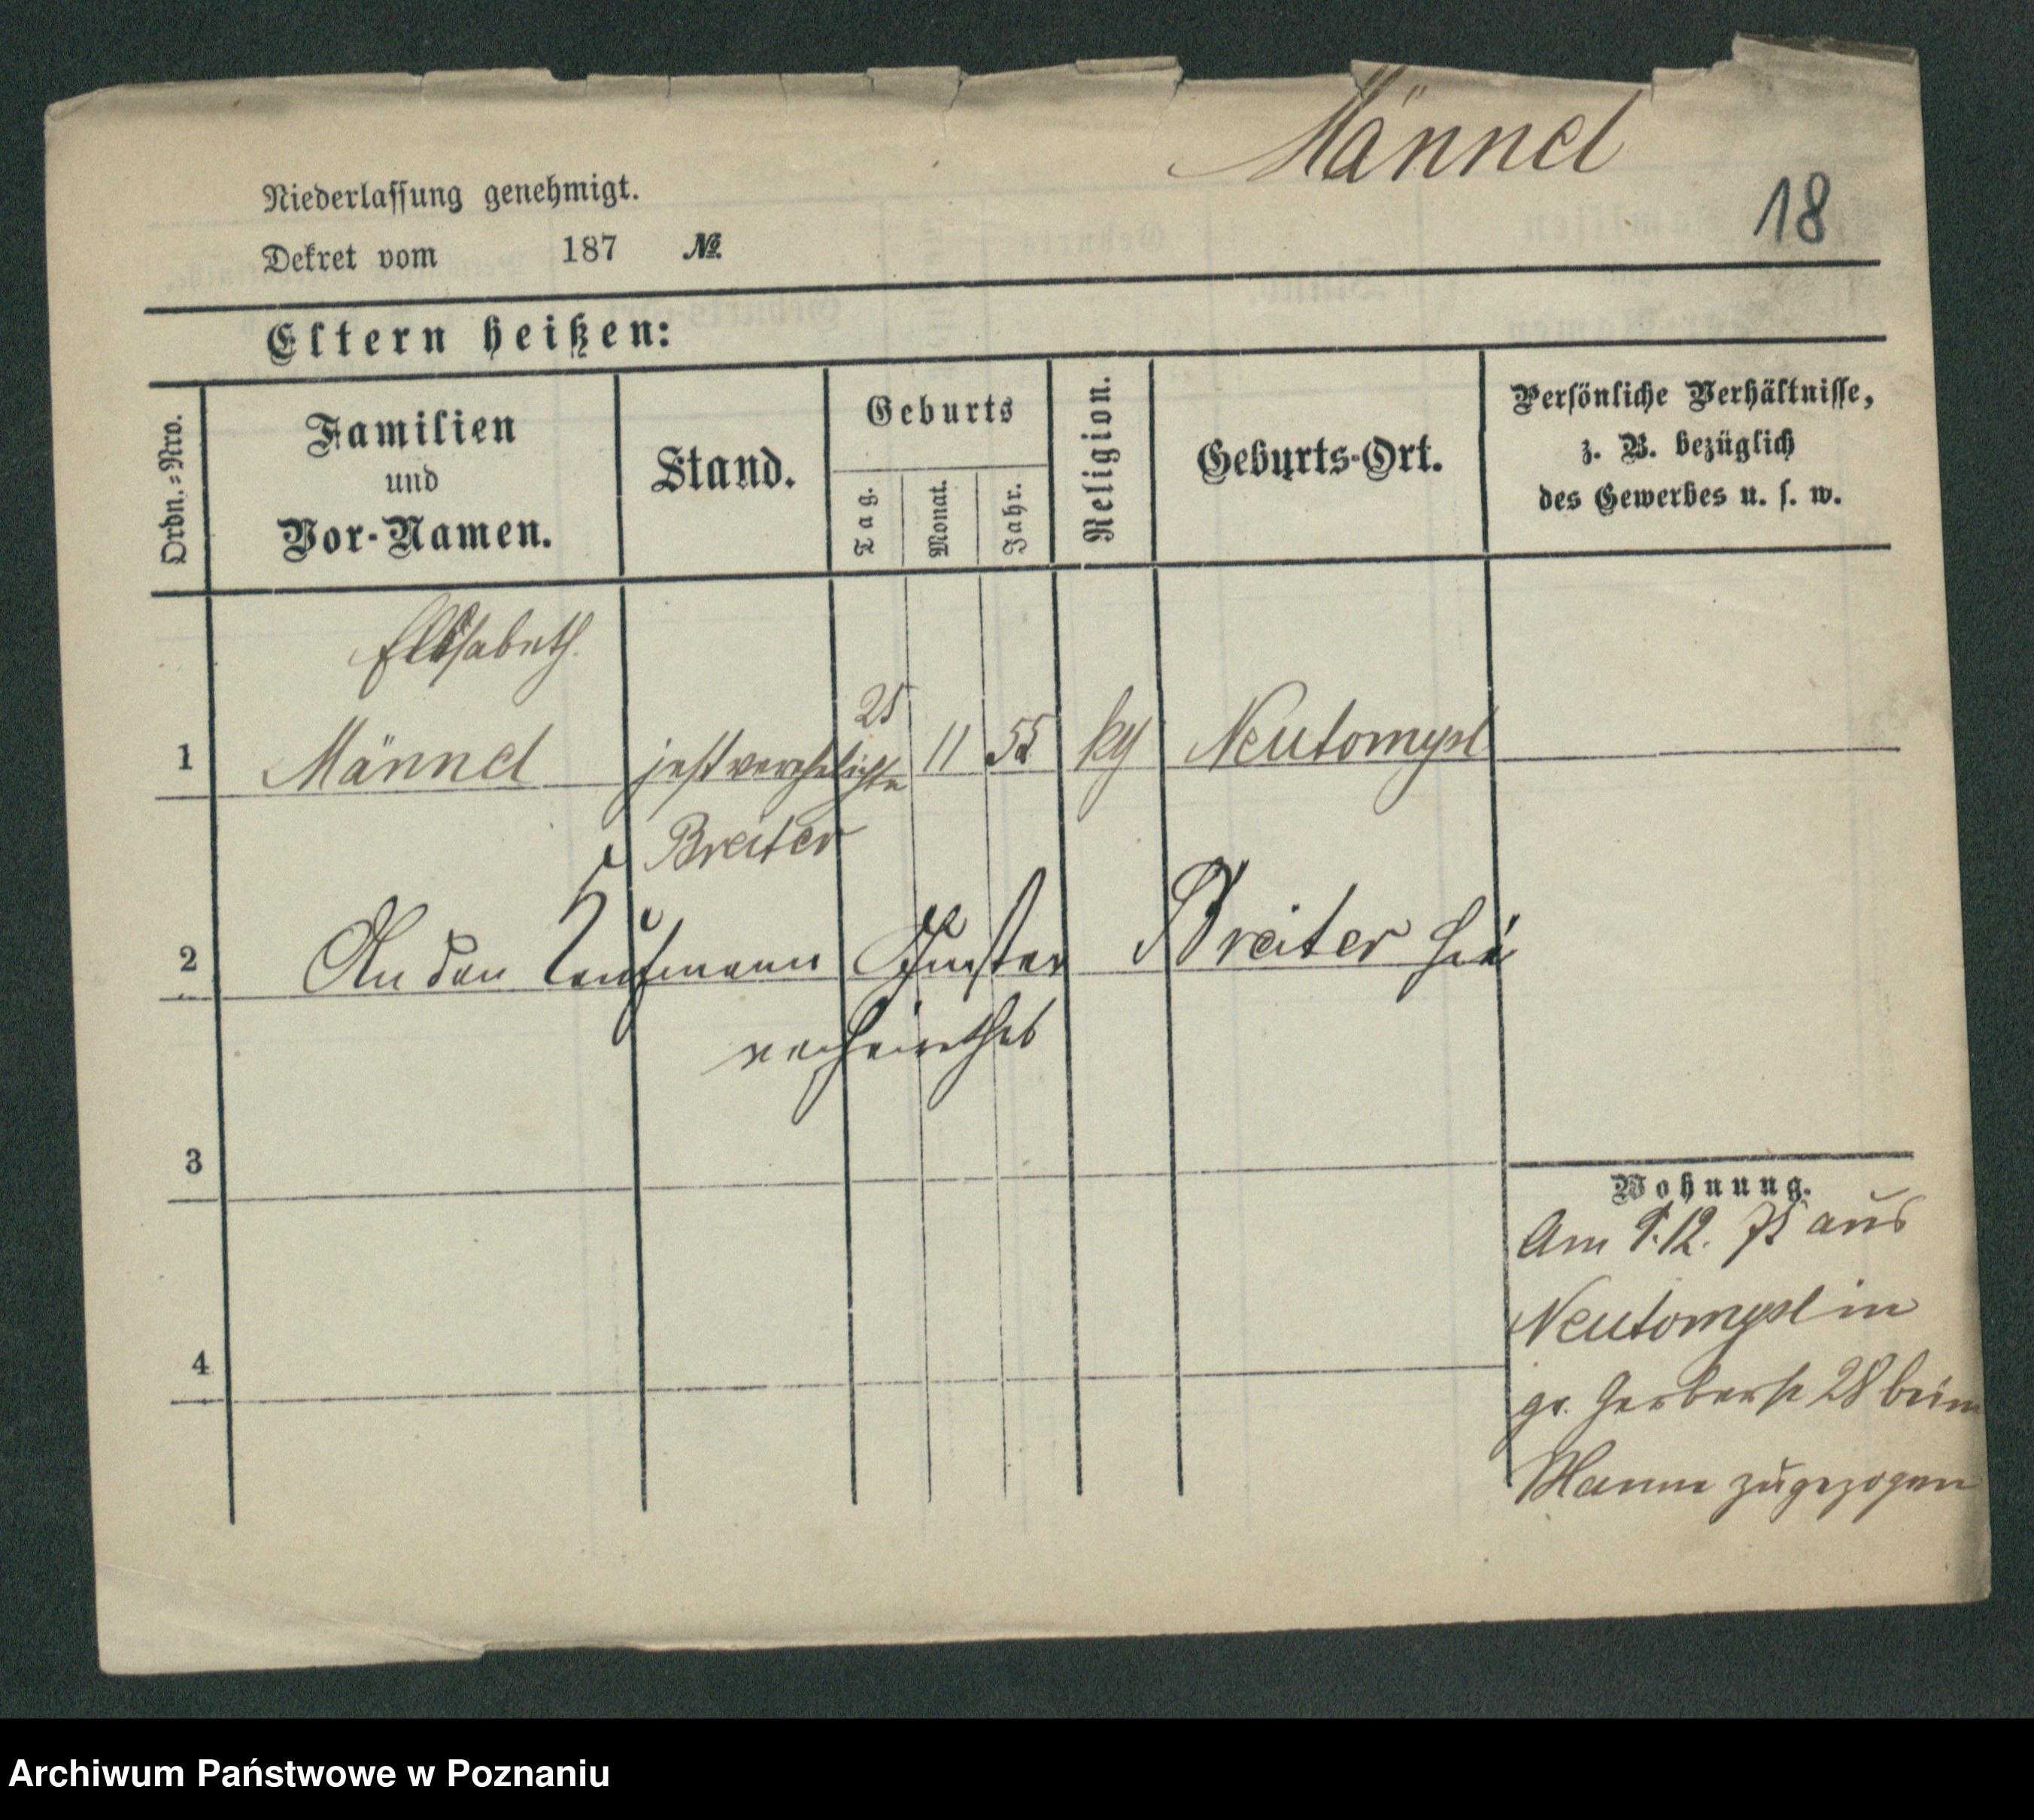 Männel
18
Niederlassung genehmigt.
Dekret vom 187 №
Eltern heißen:
Ordn.=Nro.
Familien
und
Vor-Namen.
Stand.
Geburts
Tag.
Monat.
Jahr.
Religion.
Geburts-Ort.
Persönliche Verhältnisse,
z. B. bezüglich
des Gewerbes u. s. w.
Elisabeth.
25
1 Männel jetzt verehelichte 11 55 Neutomysl
Breiter
2 An den Kaufmann Breiter
verheirathet
3
Wohnung.
Am 12. 75 aus
Neutomysl in
4
gr. Gerberst 28 beim
Manne zugezogen
Archiwum Państwowe w Poznaniu